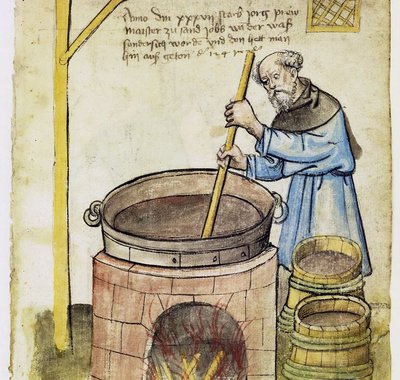 Anno dm xxxvij starb jorg prew
maister zu sand jobs wa der waß
sundersich worde und den hett man
hin auß geton